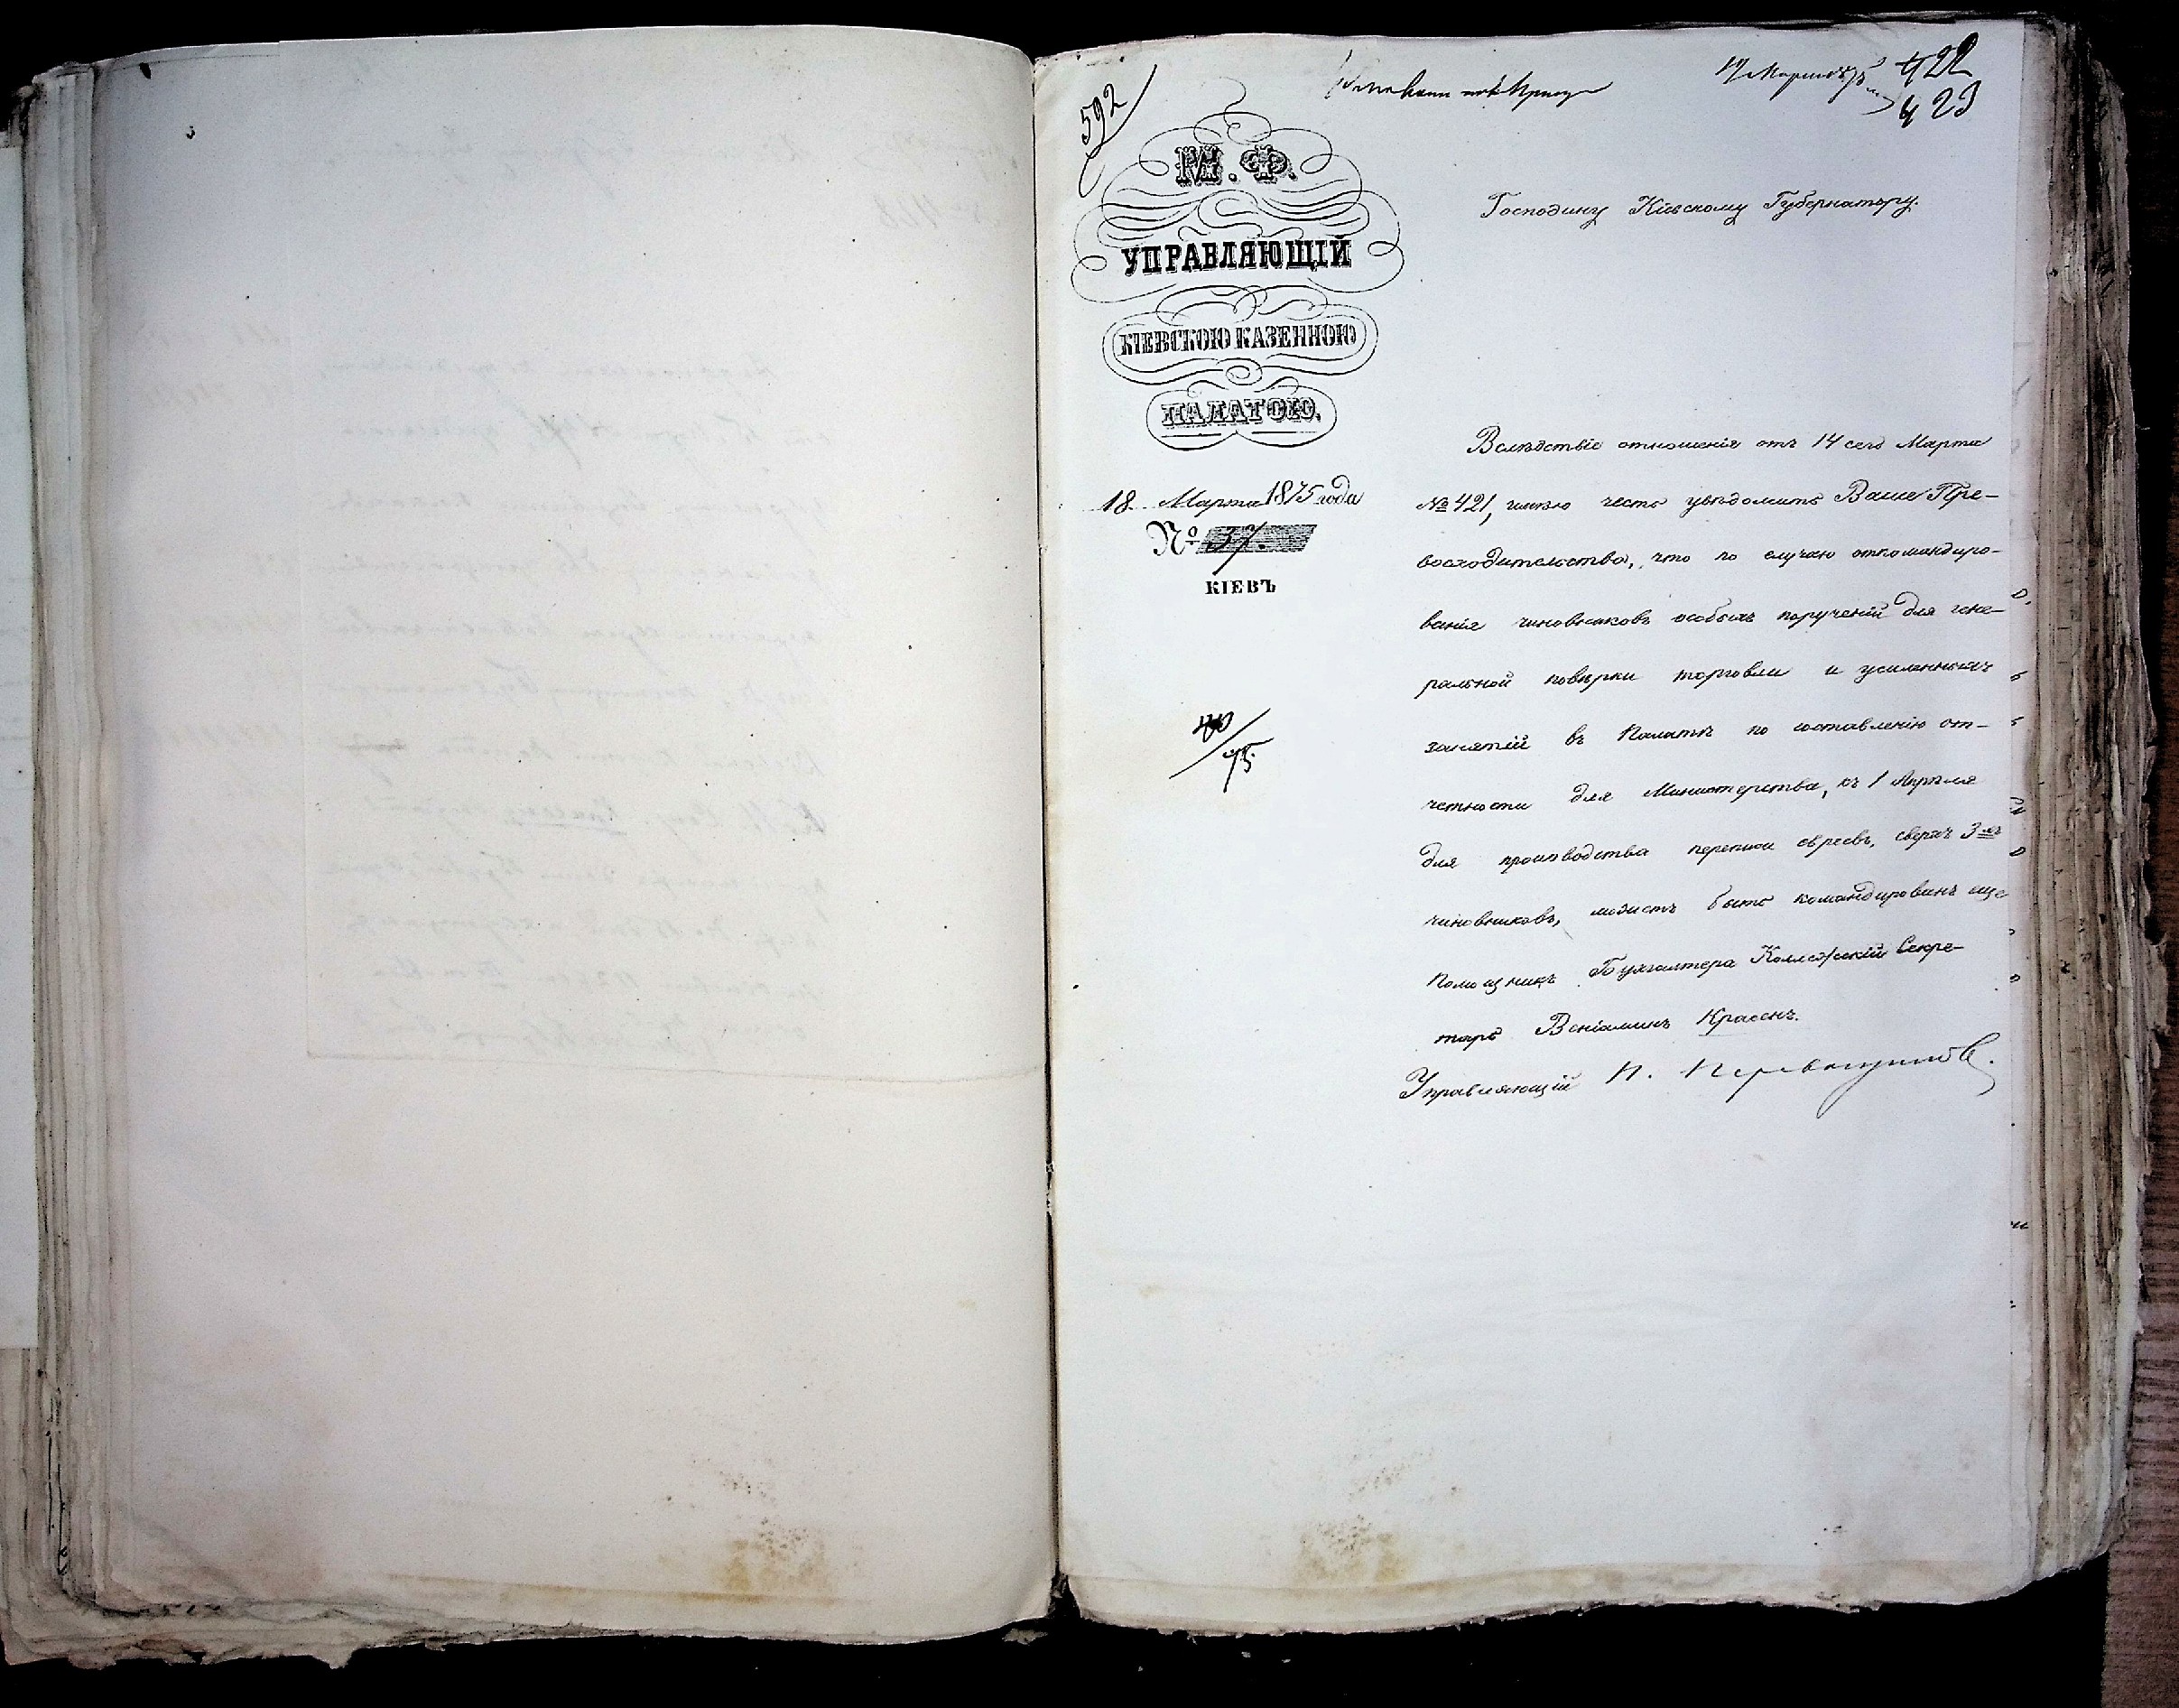 592
19 Марта 1875
422
423
М. Ф.
УПРАВЛЯЮЩІЙ
КІЕВСКОЮ КАЗЕННОЮ
ПАЛАТОЮ.
18 Марта 1875 года
№ 37.
КІЕВЪ
40/75
Господину Кіевскому Губернатору.
Вслѣдствіе отношенія отъ 14 сего Марта
№ 421, имѣю честь увѣдомить Ваше Пре-
восходительство, что по случаю откомандиро-
ванія чиновниковъ особыхъ порученій для гене-
ральной повѣрки торговли и усиленныхъ
занятій въ Палатѣ по составленію от-
четности для Министерства, къ 1 Апрѣля
для производства переписи евреевъ, сверхъ 3-хъ
чиновниковъ, можетъ быть командированъ еще
Помощникъ Бухгалтера Коллежскій Секре-
тарь Веніаминъ Красенъ.
Управляющій